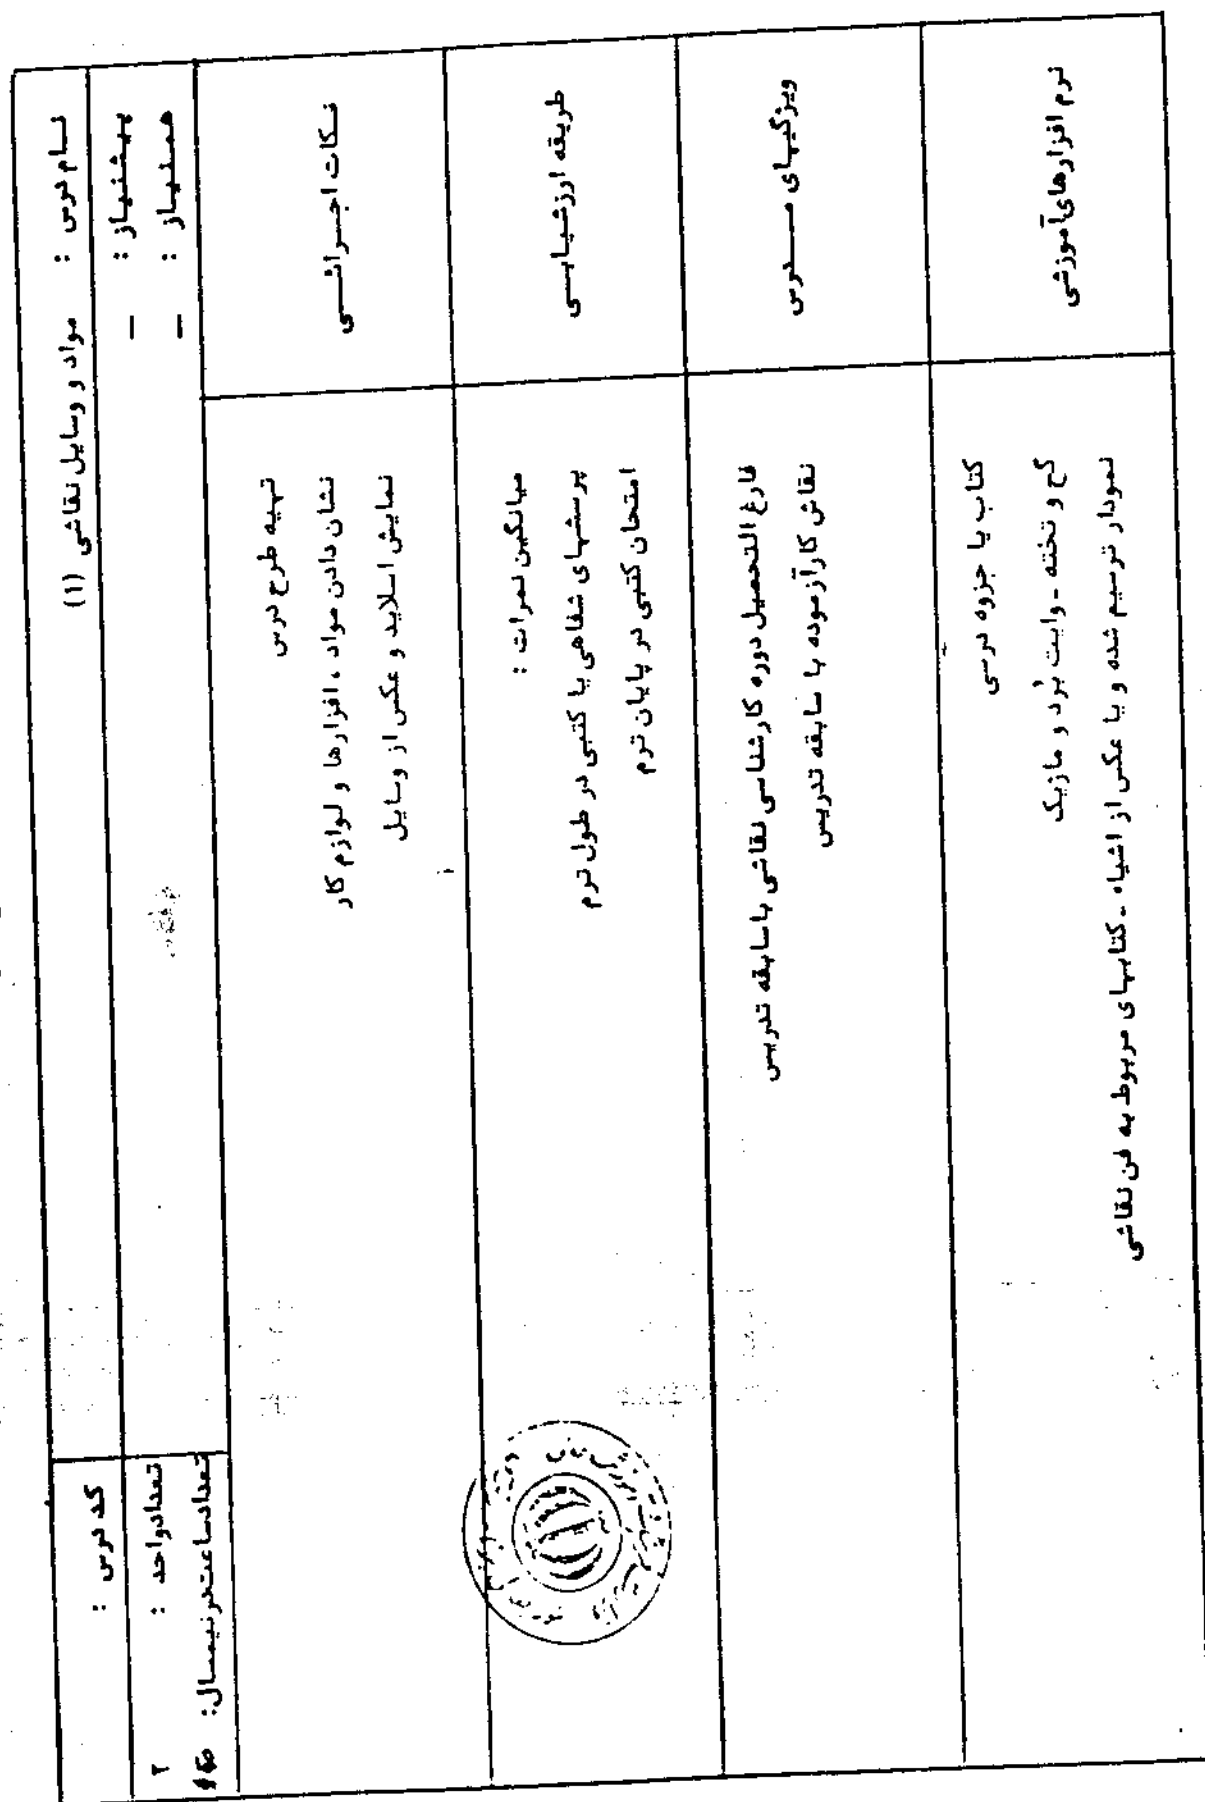 نام درس : مواد و وسایل نقاشی (۱)
کد درس :
پیشنیاز : –
همنیاز : –
تعداد واحد : ۲
تعداد ساعت در نیمسال :
نکات اجرائی
تهیه طرح درس
نشان دادن مواد ، افزارها و لوازم کار
نمایش اسلاید و عکس از وسایل
طریقه ارزشیابی
میانگین نمرات :
پرسشهای شفاهی یا کتبی در طول ترم
امتحان کتبی در پایان ترم
ویژگیهای مدرس
فارغ التحصیل دوره کارشناسی نقاشی باسابقه تدریس
نقاش کارآزموده با سابقه تدریس
نرم افزارهای آموزشی
کتاب یا جزوه درسی
گچ و تخته - وایت بُرد و ماژیک
نمودار ترسیم شده و یا عکس از اشیاء - کتابهای مربوط به فن نقاشی